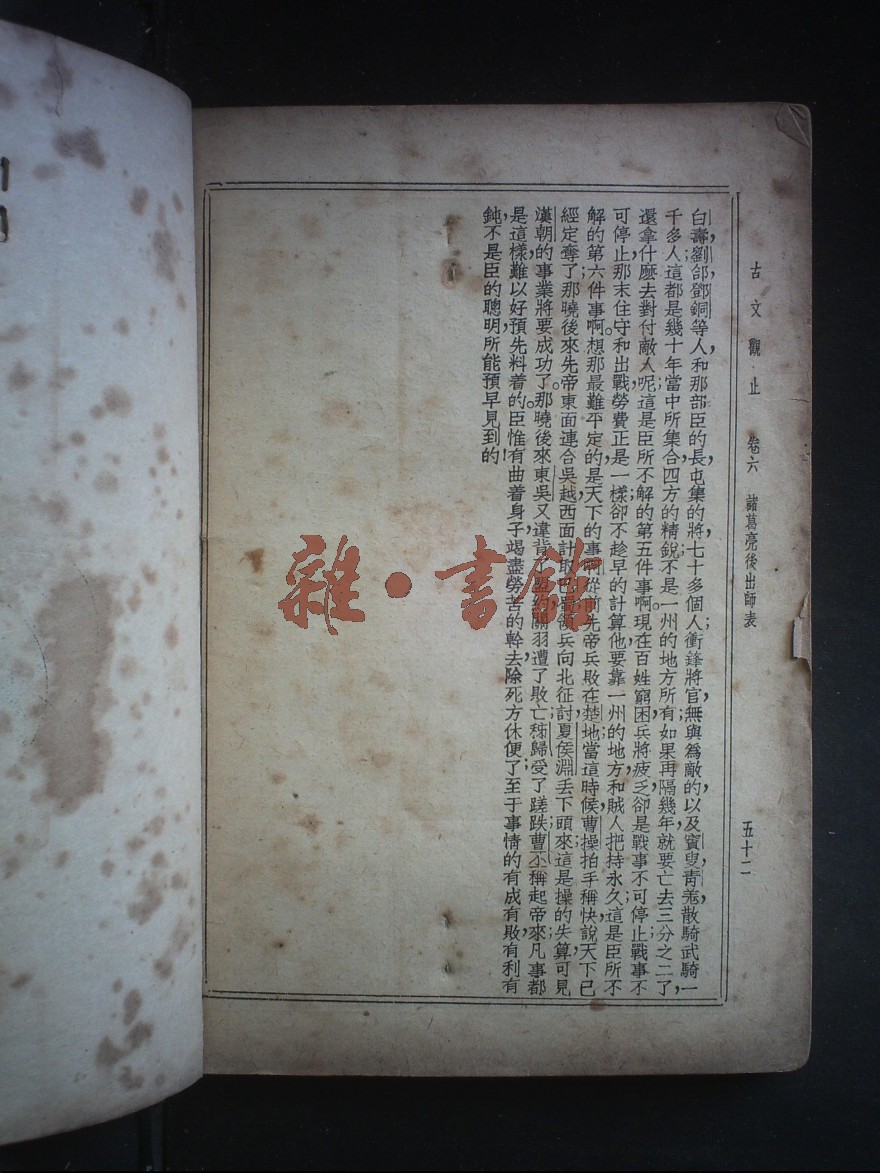 古文觀止 卷六 諸葛亮後出師表 五十二
白壽，劉郃，鄧銅等人，和那部臣的長，屯集的將，七十多個人；衝鋒將官，無與爲敵的，以及賨叟，青羌，散騎，武騎，一
千多人；這都是幾十年當中，所集合四方的精銳；不是一州的地方所有；如果再隔幾年，就要亡去三分之二了，
還拿什麽去對付敵人呢？這是臣所不解的第五件事啊。現在百姓窮困，兵將疲乏，卻是戰事不可停止；戰事不
可停止，那末住守和出戰，勞費正是一樣；卻不趁早的計算他，要靠一州的地方，和賊人把持永久；這是臣所不
解的第六件事啊。想那最難平定的，是天下的事啊。從前先帝兵敗在楚地，當這時候，曹操拍手稱快，說天下已
經定奪了；那曉後來先帝東面連合吳越，西面計取巴蜀，領兵向北征討，夏侯淵丟下頭來；這是操的失算，可見
漢朝的事業將要成功了。那曉後來東吳又違背了盟約，關羽遭了敗亡；秭歸受了蹉跌；曹丕稱起帝來；凡事都
是這樣，難以好預先料着的。臣惟有曲着身子，竭盡勞苦的幹去，除死方休便了；至于事情的有成有敗，有利有
鈍，不是臣的聰明所能預早見到的！
雜·書館